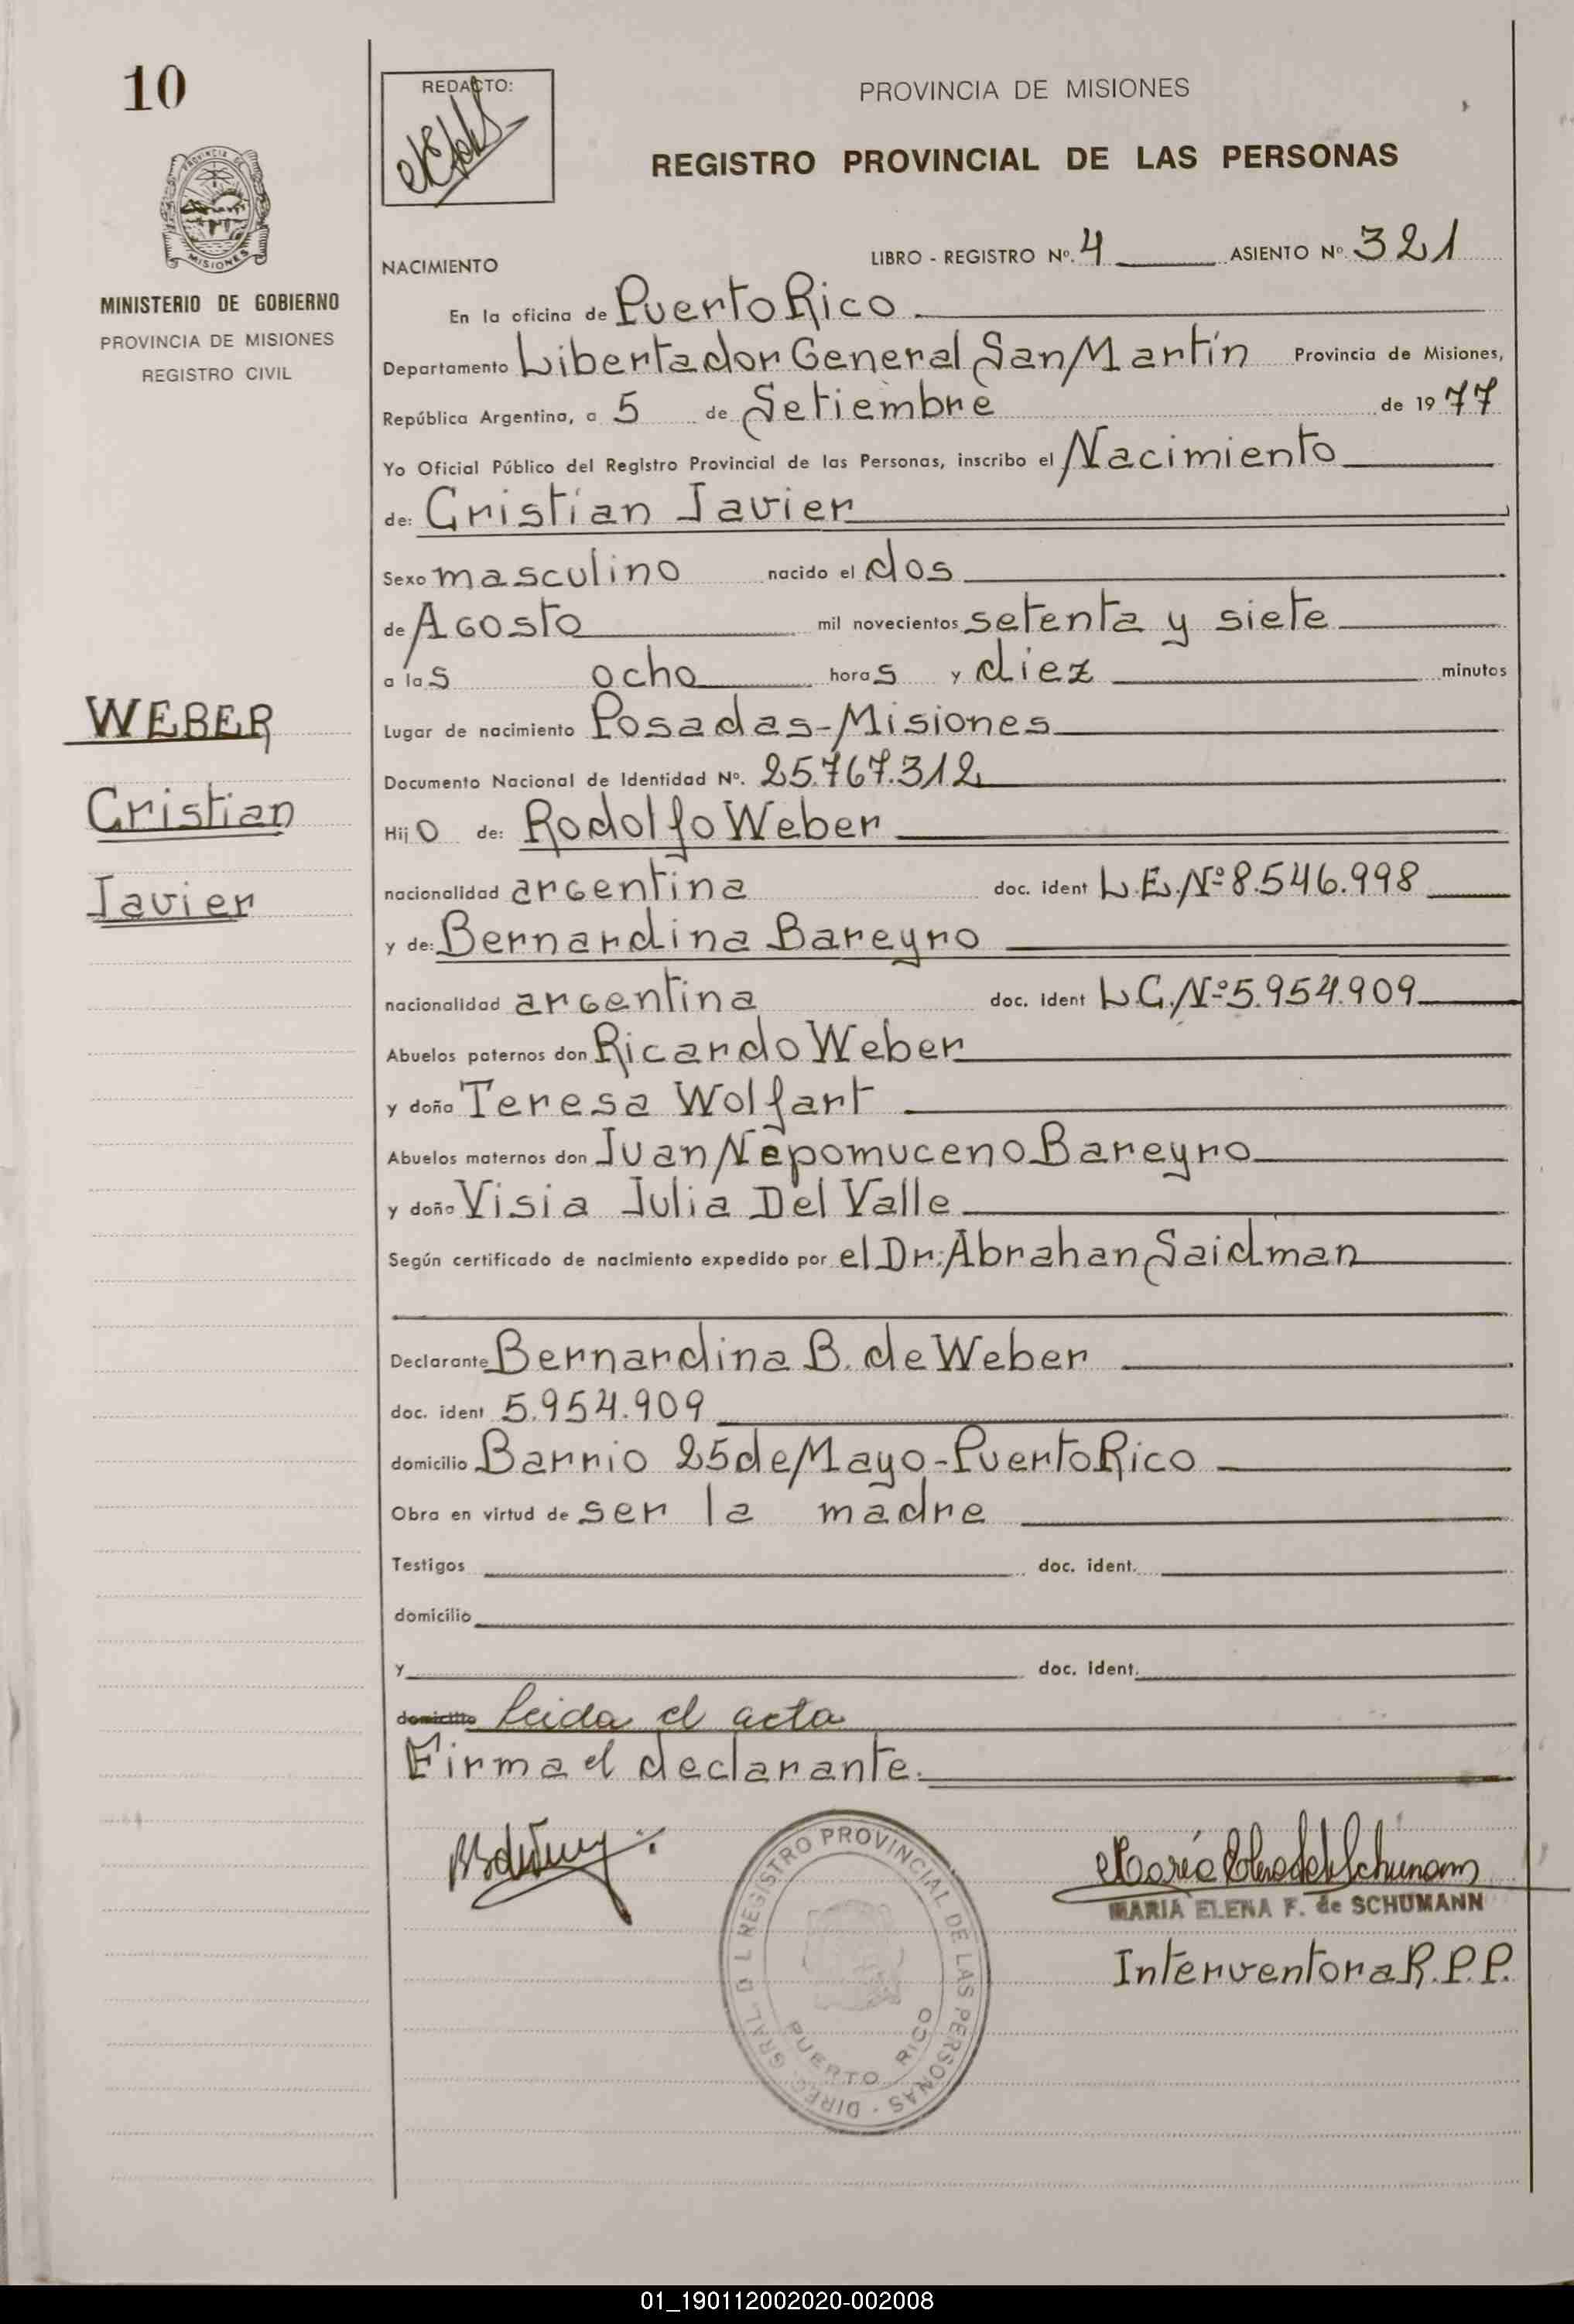 10
REDACTO:
PROVINCIA DE MISIONES
REGISTRO PROVINCIAL DE LAS PERSONAS
PROVINCIA DE
MISIONES
MINISTERIO DE GOBIERNO
PROVINCIA DE MISIONES
REGISTRO CIVIL
NACIMIENTO LIBRO - REGISTRO Nº. 4 ASIENTO Nº 321
En la oficina de Puerto Rico
Departamento Libertador General San Martín Provincia de Misiones,
República Argentina, a 5 de Setiembre de 1977
Yo Oficial Público del Registro Provincial de las Personas, inscribo el Nacimiento
de: Cristian Javier
Sexo masculino nacido el dos
de Agosto mil novecientos setenta y siete
a las ocho horas y diez minutos
WEBER
Cristian
Javier
Lugar de nacimiento Posadas-Misiones
Documento Nacional de Identidad Nº. 25.767.312
Hijo de: Rodolfo Weber
nacionalidad argentina doc. ident L.E.Nº 8.546.998
y de: Bernardina Bareyro
nacionalidad argentina doc. ident L.C.Nº 5.954.909
Abuelos paternos don Ricardo Weber
y doña Teresa Wolfart
Abuelos maternos don Juan Nepomuceno Bareyro
y doña Visia Julia Del Valle
Según certificado de nacimiento expedido por el Dr: Abrahan Saidman
Declarante Bernardina B. de Weber
doc. ident 5.954.909
domicilio Barrio 25 de Mayo-Puerto Rico
Obra en virtud de ser la madre
Testigos doc. ident.
domicilio
y doc. ident.
domicilio leida el acta
Firma el declarante.
DIREC. GRAL D L REGISTRO PROVINCIAL DE LAS PERSONAS
PUERTO RICO
MARIA ELENA F. de SCHUMANN
Interventora R.P.P.
01_190112002020-002008